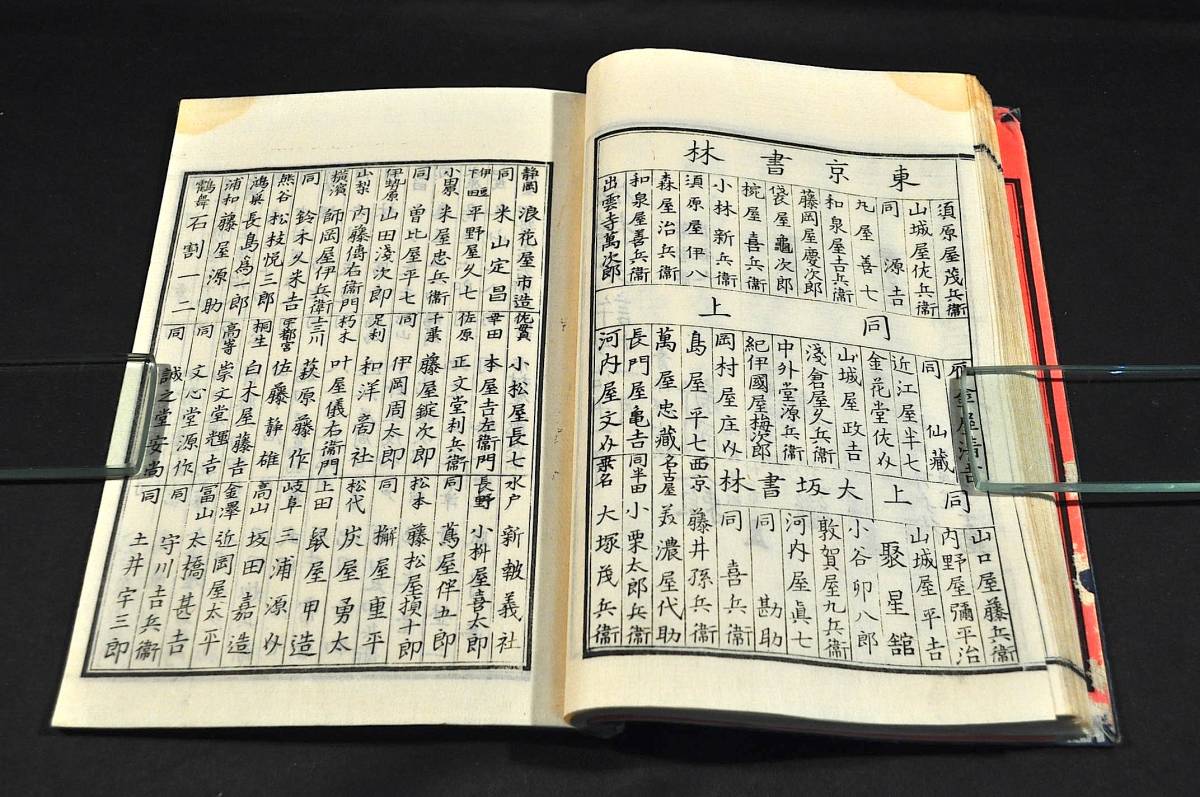 東京書林
須原屋茂兵衞
山城屋佐兵衞
同 源吉
丸屋善七
和泉屋吉兵衞
藤岡屋慶次郎
袋屋龜次郎
椀屋喜兵衞
小林新兵衞
須原屋伊八
森屋治兵衞
和泉屋善兵衞
出雲寺萬次郎
同上
同 仙藏
近江屋半七
金花堂佐助
山城屋政吉
淺倉屋久兵衞
中外堂源兵衞
紀伊國屋梅次郎
岡村屋庄助
島屋平七
萬屋忠藏
長門屋亀吉
河内屋文助
同上
山口屋藤兵衞
内野屋彌平治
山城屋平吉
聚星舘
小谷卯八郎
敦賀屋九兵衞
大坂書林
河内屋眞七
同 勘助
同 喜兵衞
西京 藤井孫兵衞
名古屋 美濃屋代助
同半田 小栗太郎兵衞
桑名 大塚茂兵衞
静岡 浪花屋市造
同 米山定昌
伊豆下田 平野屋久七
小田原 米屋忠兵衞
同 曽比屋平七
伊勢原 山田淺次郎
山梨 内藤傳右衞門
横濱 師岡屋伊兵衞
同 鈴木久米吉
熊谷 松枝悦三郎
鴻巣 長島為一郎
浦和 藤屋源助
鶴舞 石割一二
佐貫 小松屋長七
幸田 本屋吉左衞門
佐原 正文堂利兵衞
千葉 藤屋錠次郎
同 伊岡周太郎
足利 和洋商社
栃木 叶屋儀右衞門
上三川 萩原藤作
宇都宮 佐藤静雄
桐生 白木屋藤吉
高嵜 崇文堂輝吉
同 文心堂源作
同 誠之堂安尚
水戸 新皷義社
長野 小桝屋喜太郎
同 蔦屋伴五郎
松本 藤松屋禎十郎
同 懈屋重平
松代 炭屋勇太
上田 鼠屋甲造
岐阜 三浦源助
高山 坂田嘉造
金澤 近岡屋太平
冨山 太橋甚吉
同 守川吉兵衞
同 土井宇三郎